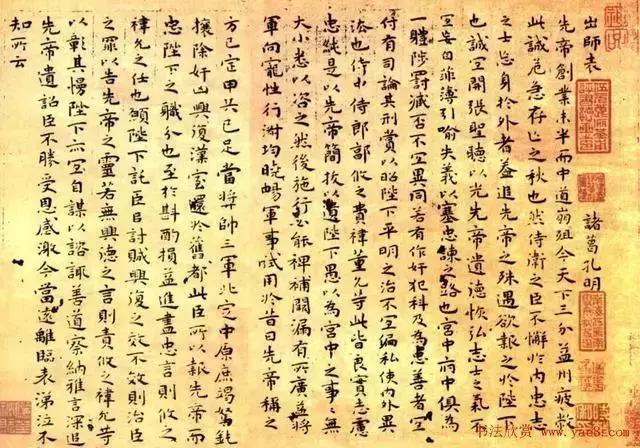 出師表 諸葛孔明
先帝創業未半而中道崩殂今天下三分益州疲敝
此誠危急存亡之秋也然侍衛之臣不懈於内忠志
之士忘身於外者蓋追先帝之殊遇欲報之於陛下
也誠宜開張聖聽以光先帝遺德恢弘志士之氣不
宜妄自菲薄引喻失義以塞忠諫之路也宮中府中俱為
一體陟罰臧否不宜異同若有作奸犯科及為忠善者宜
付有司論其刑賞以昭陛下平明之治不宜偏私使内外異
法也侍中侍郎郭攸之費禕董允等此皆良實志慮
忠純是以先帝簡拔以遺陛下愚以為宮中之事事無
大小悉以咨之然後施行必能裨補闕漏有所廣益將
軍向寵性行淑均曉暢軍事試用於昔日先帝稱之
方已定甲兵已足當獎帥三軍北定中原庶竭駑鈍
攘除奸凶興復漢室還於舊都此臣所以報先帝而
忠陛下之職分也至於斟酌損益進盡忠言則攸之
禕允之任也願陛下託臣以討賊興復之效不效則治臣
之罪以告先帝之靈若無興德之言則責攸之禕允等
以彰其慢陛下亦宜自謀以諮諏善道察納雅言深追
先帝遺詔臣不勝受恩感激今當遠離臨表涕泣不
知所云
书法欣赏